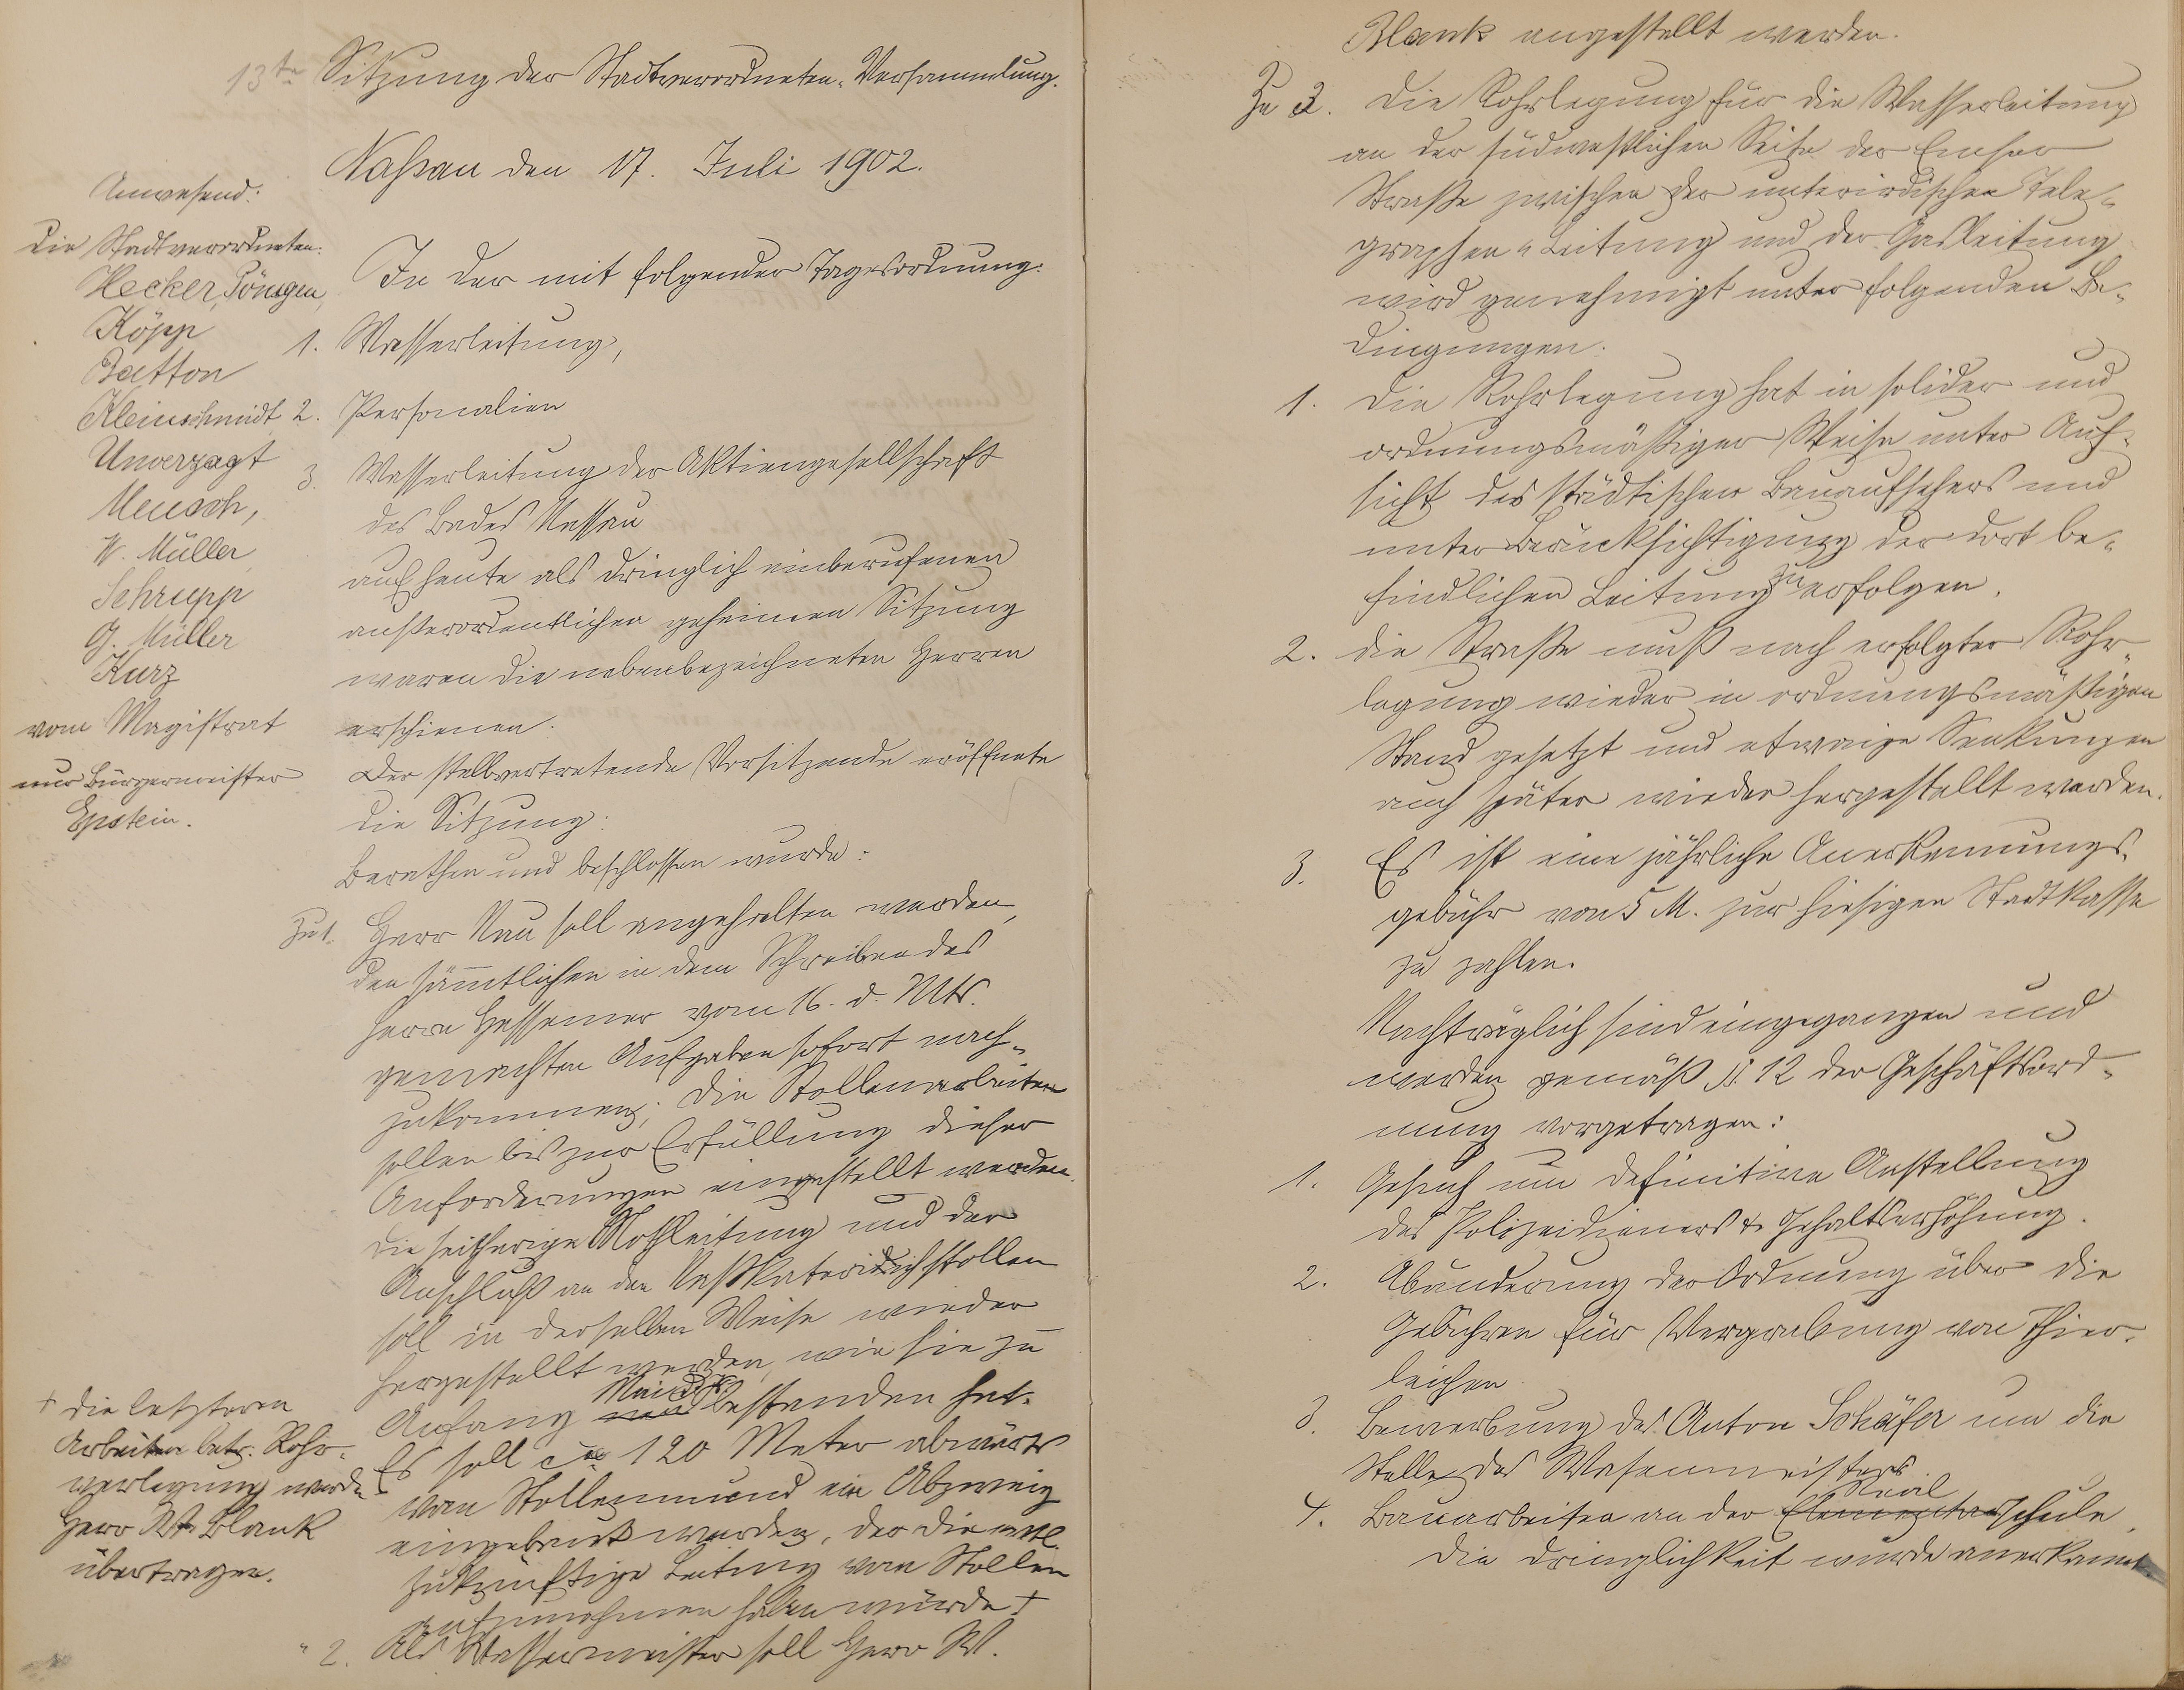 13te Sitzung der Stadtverordneten-Versammlung.
Naßau den 17. Juli 1902.
Anwesend:
die Stadtverordneten:
Hecker, Tönsgen,
Köpp
Batton
Kleinschmidt
Unverzagt
Meusch,
W. Müller
Schrupp
G. Müller
Kurz
vom Magistrat
nur Bürgermeister
Epstein.
In der mit folgender Tagesordnung:
1. Wasserleitung,
2. Personalien
3. Wasserleitung der Aktiengesellschaft
des Bades Nassau
auf heute als dringlich einberufenen
außerordentlichen geheimen Sitzung
waren die nebenbezeichneten Herren
erschienen.
Der stellvertretende Vorsitzende eröffnete
die Sitzung:
Berathen und beschlossen wurde:
Zu 1. Herr Nau soll angehalten werden,
den sämtlichen in dem Schreiben des
Herrn Hessemer vom 16. d. Mts.
gemachten Aufgaben sofort nach-
zukommen; die Stollenarbeiten
sollen bis zur Erfüllung dieser
Anforderungen eingestellt werden.
Die seitherige Nothleitung und der
Anschluß an den
soll in derselben Weise wieder
hergestellt werden, wie sie zu
Anfang bestanden hat.
Es soll ca 120 Meter abwärts
vom Stollenmund ein Abzweig
eingebaut werden, der die evtl.
zukünftige Leitung vom Stollen
aufzunehmen haben würde +
+ die letzteren
Arbeiten betr. Rohr-
verlegung werden
Herrn W. Blank
übertragen.
" 2. Als Wassermeister soll Herr W.
Blank angestellt werden.
Zu 3. Die Rohrlegung für die Wasserleitung
an der südwestlichen Seite der Emser
Straße zwischen der unterirdischen Tele-
graphen-Leitung und der Gasleitung
wird genehmigt unter folgenden Be-
dingungen.
1. Die Rohrlegung hat in solider und
ordnungsmäßiger Weise unter Auf-
sicht des städtischen Bauaufsehers und
unter Berücksichtigung der dort be-
findlichen Leitung zu erfolgen.
2. Die Straße muß nach erfolgter Rohr-
legung wieder in ordnungsmäßigen
Stand gesetzt und etwaige Senkungen
auch später wieder hergestellt werden.
3. Es ist eine jährliche Anerkennungs-
gebühr von 5 M. zur hiesigen Stadtkasse
zu zahlen.
Nachträglich sind eingegangen und
werden gemäß § 12 der Geschäftsord-
nung vorgetragen:
1. Gesuch um definitive Anstellung
des Polizeidieners & Gehaltserhöhung.
2. Abänderung der Ordnung über die
Gebühren für Vergrabung von Thier-
leichen.
3. Bewerbung des Anton Schäfer um die
Stelle des Wasenmeisters.
4. Bauarbeiten an der Elementar Real schule
Die Dringlichkeit wurde anerkannt.